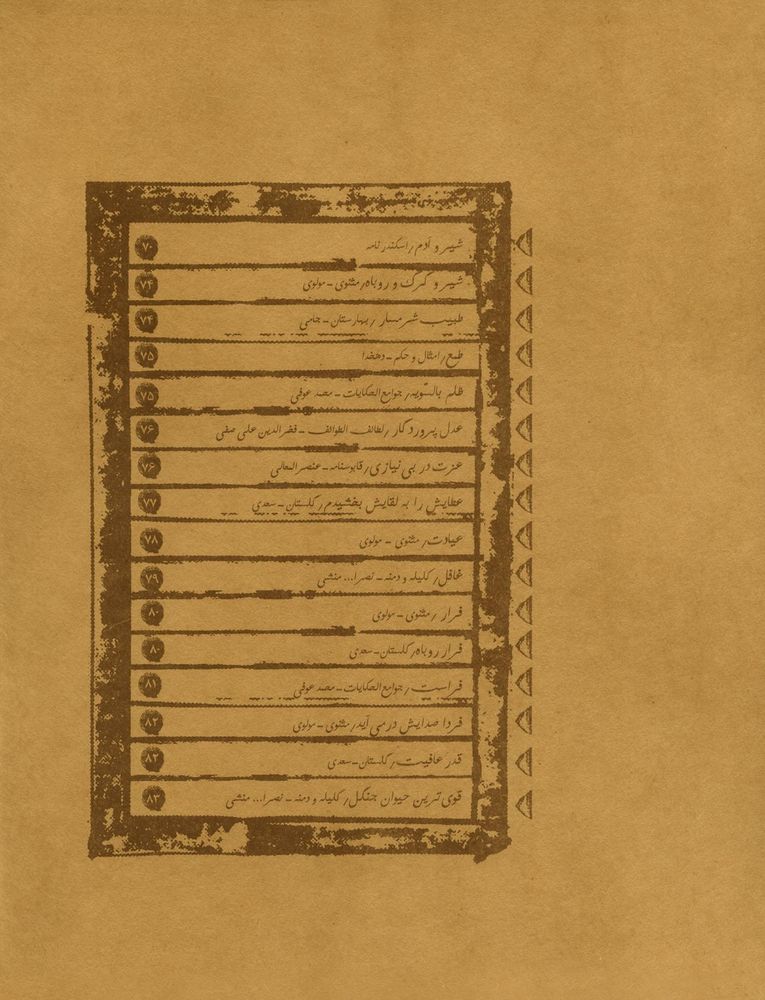 شیر و آدم/ اسکندرنامه ۷۰
شیر و گرگ و روباه/ مثنوی ـ مولوی ۷۴
طبیب شرمسار/ بهارستان ـ جامی ۷۴
طمع/ امثال و حکم ـ دهخدا ۷۵
ظلم بالسّویه/ جوامع‌الحکایات ـ محمد عوفی ۷۵
عدل پروردگار/ لطائف الطوائف ـ فخرالدین علی صفی ۷۶
عزت در بی نیازی/ قابوسنامه ـ عنصرالمعالی ۷۶
عطایش را به لقایش بخشیدم/ گلستان ـ سعدی ۷۷
عیادت/ مثنوی ـ مولوی ۷۸
غافل/ کلیله و دمنه ـ نصرا... منشی ۷۹
فرار/ مثنوی ـ مولوی ۸۰
فرار روباه/ گلستان ـ سعدی ۸۰
فراست/ جوامع‌الحکایات ـ محمد عوفی ۸۱
فردا صدایش درمی آید/ مثنوی ـ مولوی ۸۲
قدر عافیت/ گلستان ـ سعدی ۸۲
قوی ترین حیوان جنگل/ کلیله و دمنه ـ نصرا... منشی ۸۳